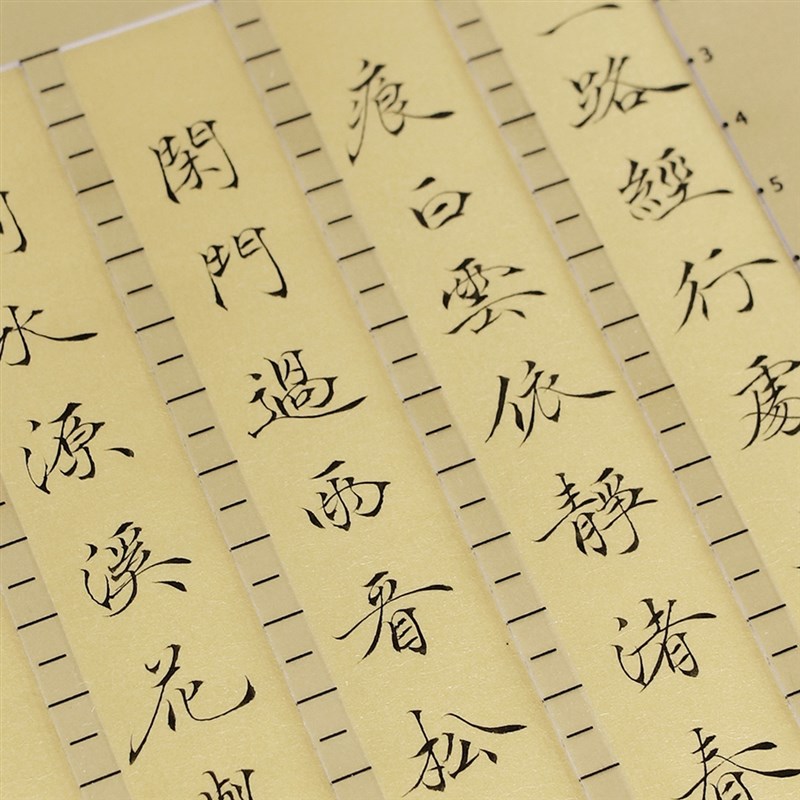 一路經行處
痕白雲依靜渚春
閑門過雨看松
水源溪花
3
4
5